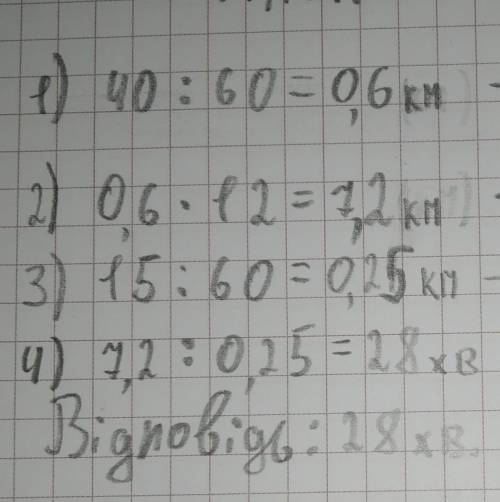 1) 40 : 60 = 0,6 км
2) 0,6 · 12 = 7,2 км
3) 15 : 60 = 0,25 км
4) 7,2 : 0,25 = 28 хв
Відповідь: 28 хв.